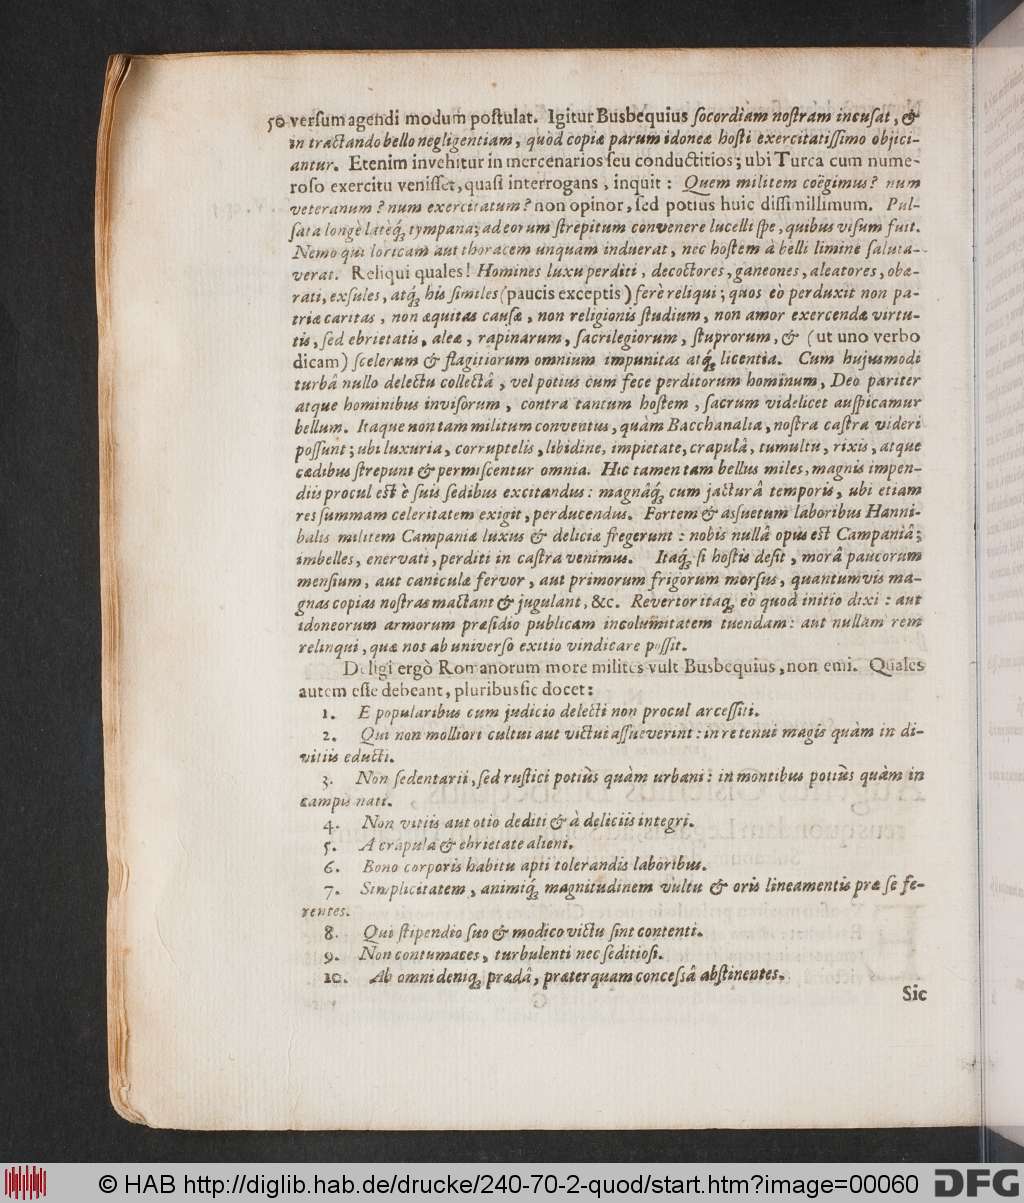 50 versum agendi modum postulat. Igitur Busbequius socordiam nostram incusat, &
in tractando bello negligentiam, quòd copiæ parum idoneæ hosti exercitatissimo objici-
antur. Etenim invehitur in mercenarios seu conductitios; ubi Turca cum nume-
roso exercitu venisset, quasi interrogans, inquit: Quem militem coëgimus? num
veteranum? num exercitatum? non opinor, sed potius huic dissimillimum. Pul-
sata longè lateq́; tympana; ad eorum strepitum convenere lucelli spe, quibus visum fuit.
Nemo qui loricam aut thoracem unquam induerat, nec hostem à belli limine saluta-
verat. Reliqui quales! Homines luxu perditi, decoctores, ganeones, aleatores, obæ-
rati, exsules, atq́; his similes (paucis exceptis) ferè reliqui; quos eò perduxit non pa-
triæ caritas, non æquitas causæ, non religionis studium, non amor exercendæ virtu-
tis, sed ebrietatis, aleæ, rapinarum, sacrilegiorum, stuprorum, & (ut uno verbo
dicam) scelerum & flagitiorum omnium impunitas atq́; licentia. Cum hujusmodi
turbâ nullo delectu collectâ, vel potius cum fece perditorum hominum, Deo pariter
atque hominibus invisorum, contra tantum hostem, sacrum videlicet auspicamur
bellum. Itaque non tam militum conventus, quàm Bacchanalia, nostra castra videri
possunt; ubi luxuria, corruptelis, libidine, impietate, crapulâ, tumultu, rixis, atque
cædibus strepunt & permiscentur omnia. Hic tamen tam bellus miles, magnis impen-
diis procul est è suis sedibus excitandus: magnâq́; cum jacturâ temporis, ubi etiam
res summam celeritatem exigit, perducendus. Fortem & assuetum laboribus Hanni-
balis militem Campaniæ luxus & deliciæ fregerunt: nobis nullâ opus est Campaniâ;
imbelles, enervati, perditi in castra venimus. Itaq́; si hostis desit, morâ paucorum
mensium, aut caniculæ fervor, aut primorum frigorum morsus, quantumvis ma-
gnas copias nostras mactant & jugulant, &c. Revertor itaq́; eò quod initio dixi: aut
idoneorum armorum præsidio publicam incolumitatem tuendam: aut nullam rem
relinqui, quæ nos ab universo exitio vindicare possit.
Deligi ergò Romanorum more milites vult Busbequius, non emi. Quales
autem esse debeant, pluribus sic docet:
1. E popularibus cum judicio delecti non procul arcessiti.
2. Qui non molliori cultui aut victui assueverint: in re tenui magis quàm in di-
vitiis educti.
3. Non sedentarii, sed rustici potiùs quàm urbani: in montibus potiùs quàm in
campis nati.
4. Non vitiis aut otio dediti & à deliciis integri.
5. A crapula & ebrietate alieni.
6. Bono corporis habitu apti tolerandis laboribus.
7. Simplicitatem, animiq́; magnitudinem vultu & oris lineamentis præ se fe-
rentes.
8. Qui stipendio suo & modico victu sint contenti.
9. Non contumaces, turbulenti nec seditiosi.
10. Ab omni deniq́; prædâ, præterquam concessâ abstinentes.
Sic
© HAB http://diglib.hab.de/drucke/240-70-2-quod/start.htm?image=00060
DFG